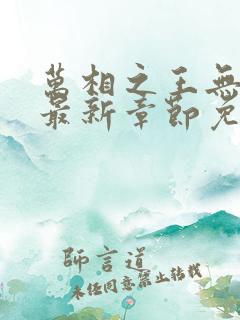 萬相之王無
最新章節免
師言道
未經同意禁止轉載